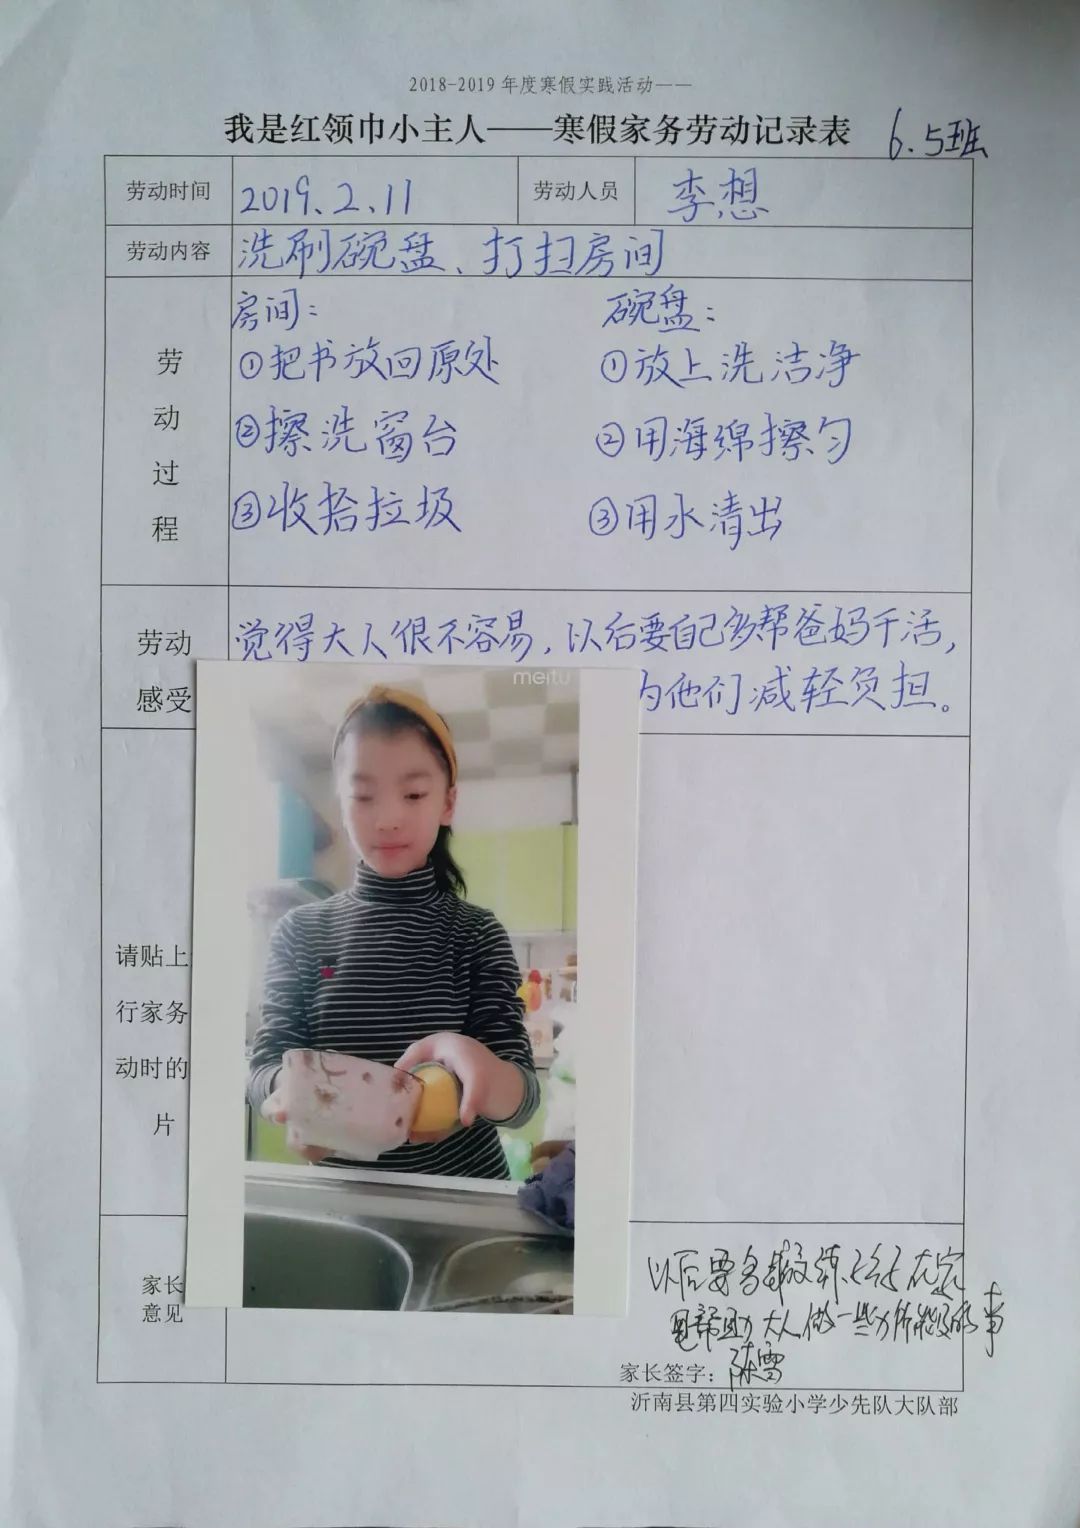 2018-2019 年度寒假实践活动——
我是红领巾小主人——寒假家务劳动记录表 6.5班
劳动时间 2019.2.11 劳动人员 李想
劳动内容 洗刷碗盘、打扫房间
劳动过程
房间： 碗盘：
①把书放回原处 ①放上洗洁净
②擦洗窗台 ②用海绵擦匀
③收拾垃圾 ③用水清出
劳动 觉得大人很不容易，以后要自己多帮爸妈干活，
感受 为他们减轻负担。
meitu
请贴上
行家务
动时的
片
家长
意见
以后要多 在家
帮助大人做一些力所能及的事
家长签字：陈雪
沂南县第四实验小学少先队大队部